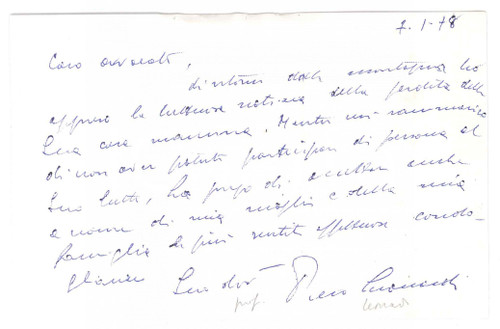 7-1-78
Caro avvocato,
di ritorno dalla montagna ho
appreso la luttuosa notizia della perdita della
Sua cara mamma. Mentre mi rammarico
di non aver potuto partecipare di persona al
Suo lutto, La prego di accettare anche
a nome di mia moglie e della mia
famiglia le più sentite affettuose condo-
glianze
Suo dev.
prof. Piero